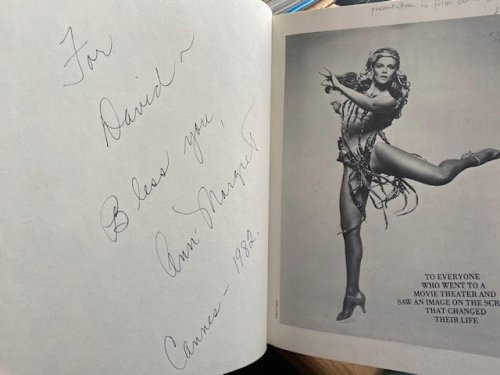 For
David ~
Bless you,
Ann-Margret
Cannes - 1982.
presentation to film
TO EVERYONE
WHO WENT TO A
MOVIE THEATER AND
SAW AN IMAGE ON THE SCR
THAT CHANGED
THEIR LIFE